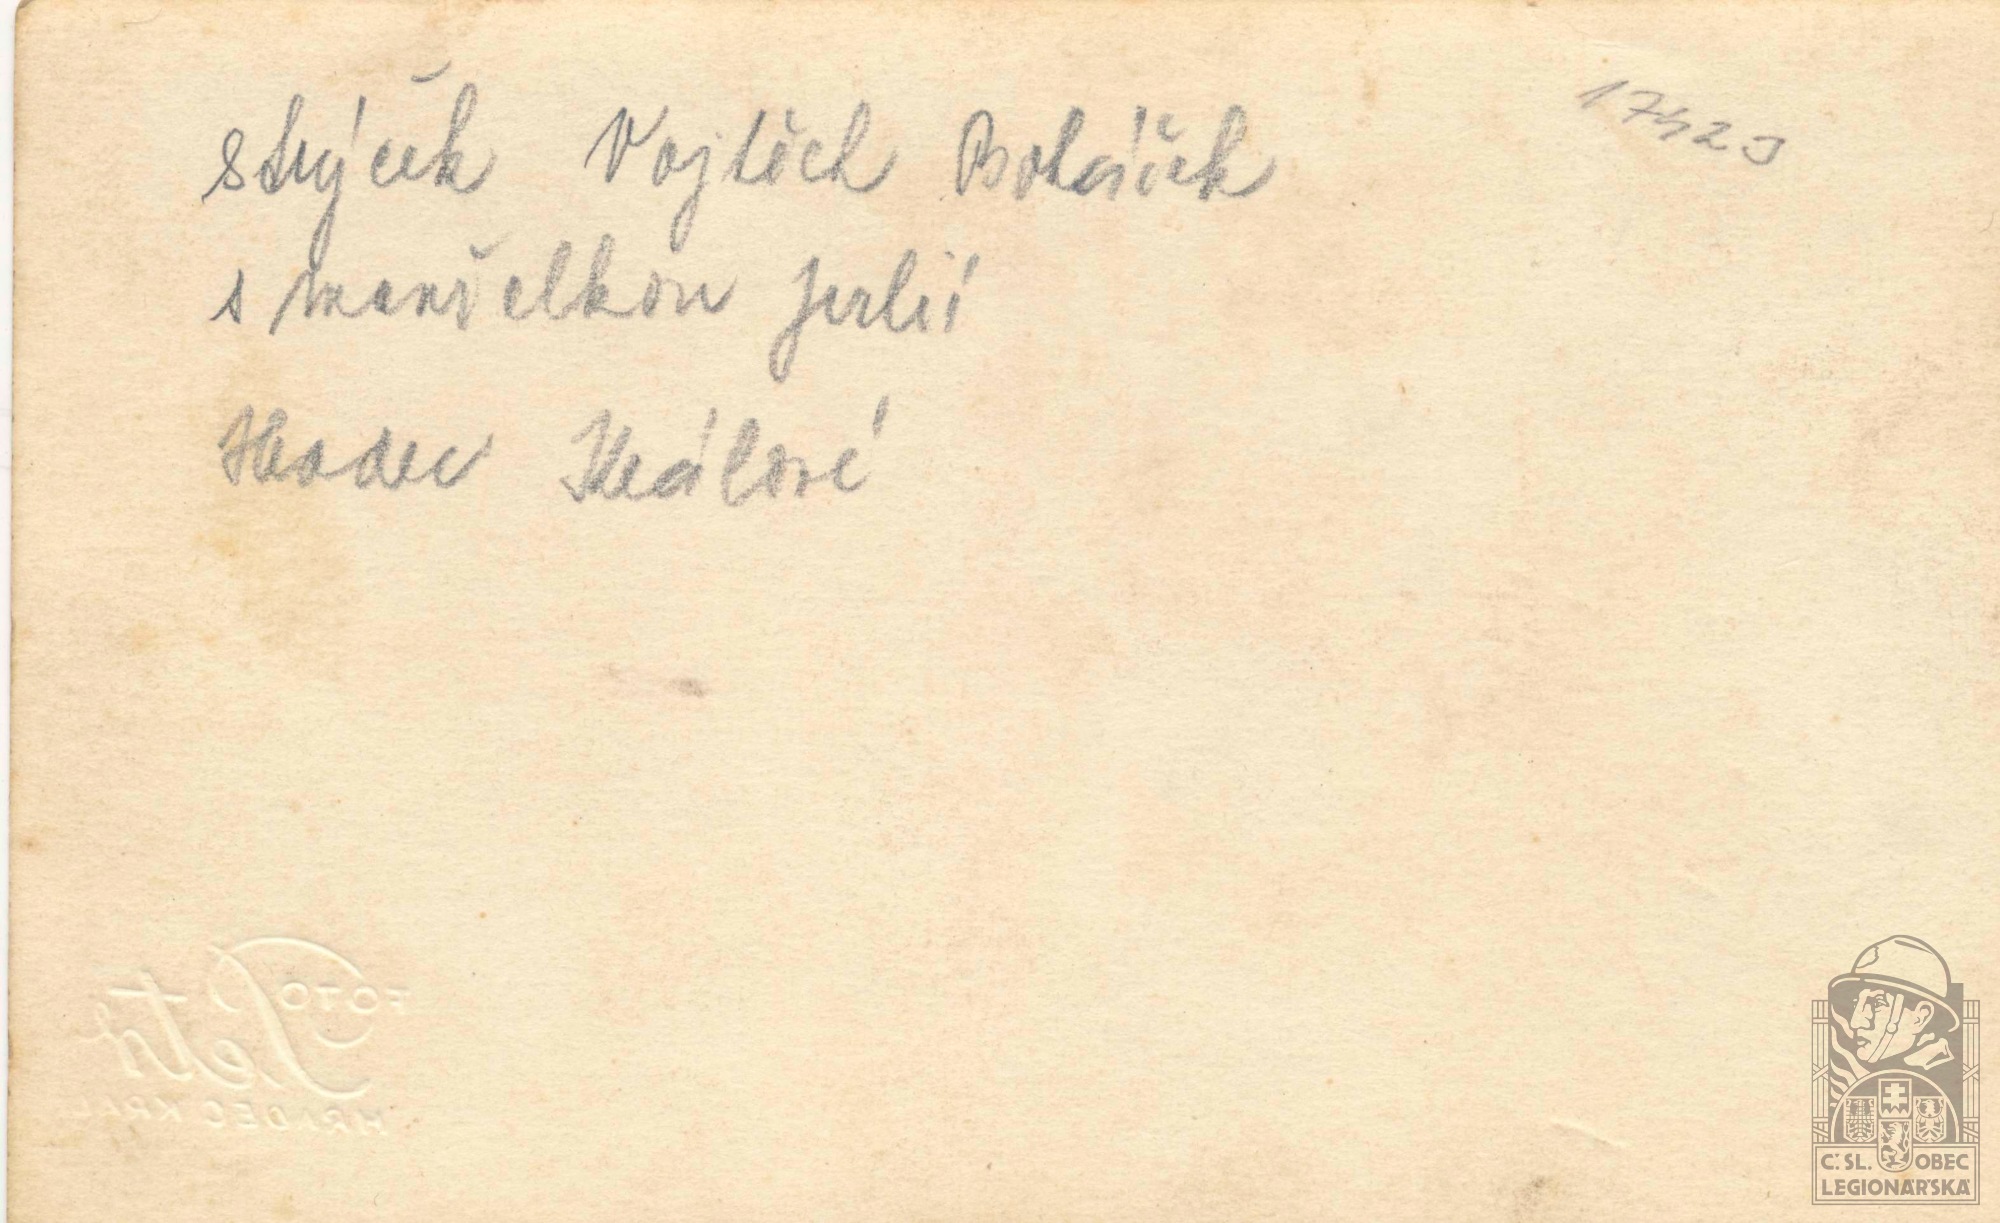 strýček Vojtěch Boháček 17423
s manželkou Julií
Hradec Králové
FOTO
Petr
HRADEC KRÁL.
Č.SL. OBEC
LEGIONÁŘSKÁ